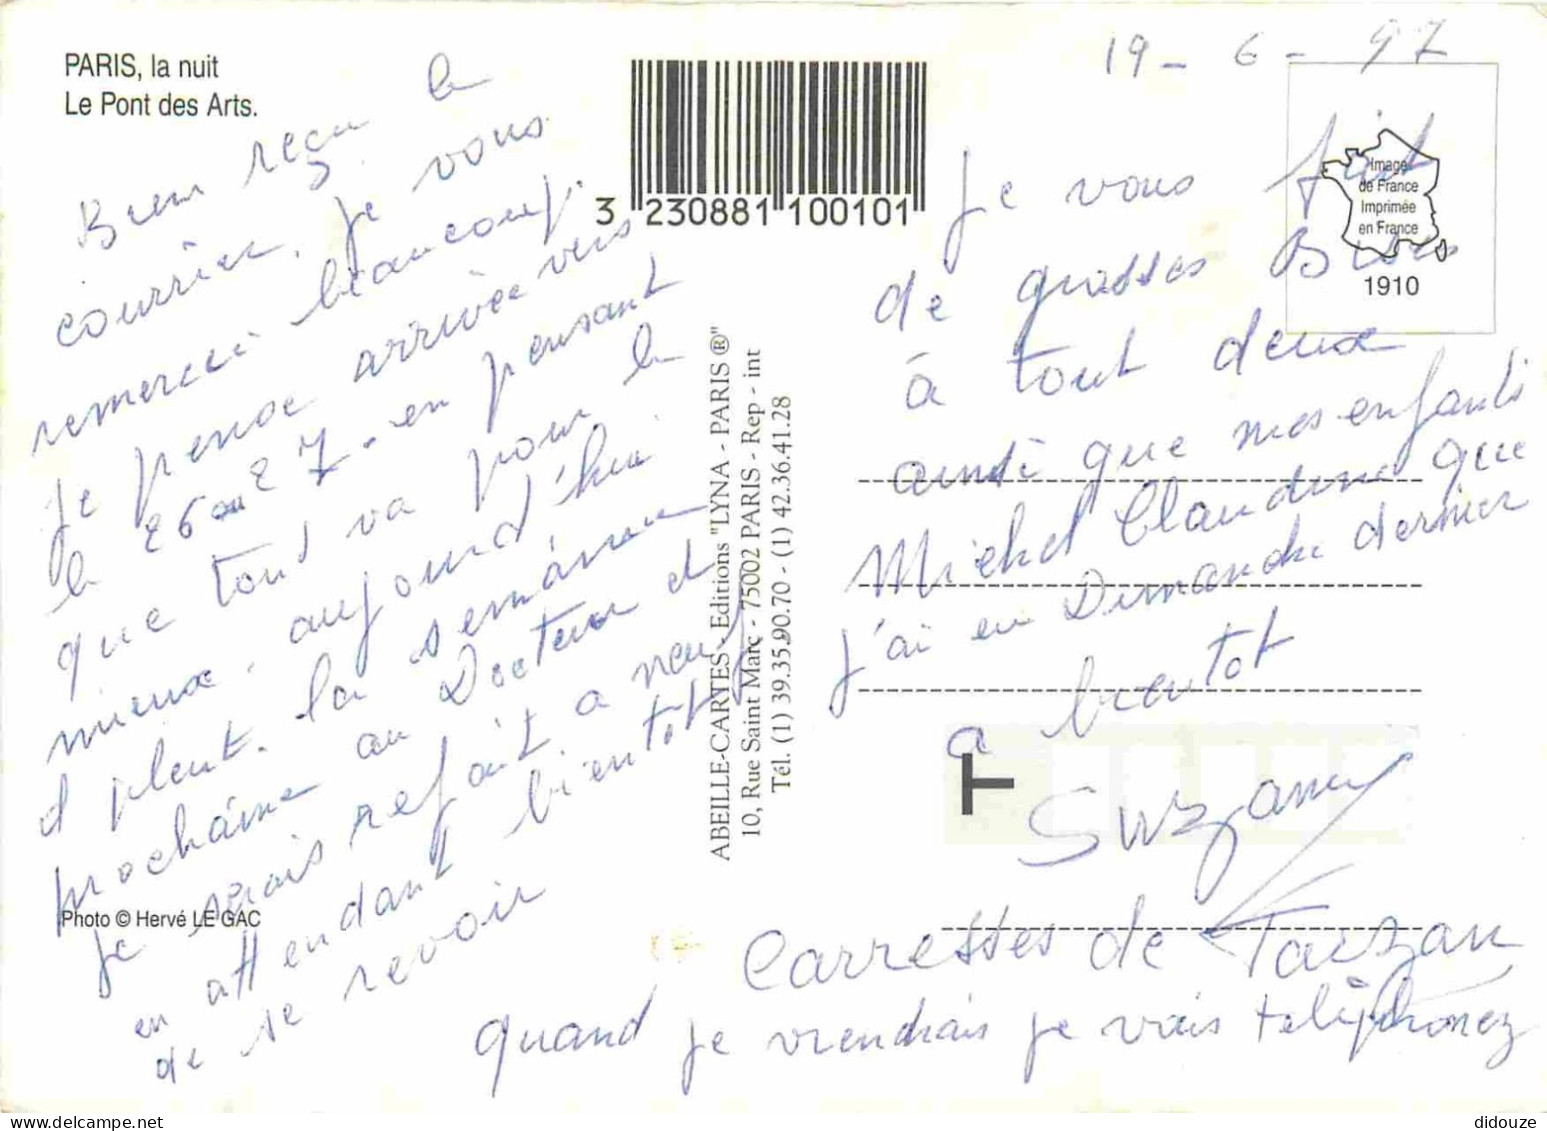 PARIS, la nuit
Le Pont des Arts.
19 - 6 - 97
Bien reçu le
courrier, je vous
remercie beaucoup
je pense arrivée vers
le 26 ou 27. en pensant
que tout va pour le
mieux. aujourd'hui
il pleut. la semaine
prochaine au Docteur et
je serais refait a neuf
en attendant bientôt
de se revoir
3 230881 100101
ABEILLE-CARTES - Editions "LYNA - PARIS ®"
10, Rue Saint Marc - 75002 PARIS - Rep - int
Tél. (1) 39.35.90.70 - (1) 42.36.41.28
Image
de France
Imprimée
en France
1910
je vous fait
de grosses Bises
à tout deux
ainsi que mes enfants
Michel Claudine que
j'ai eu Dimanche dernier
a bientot
T
Suzanne
Carresses de Tarzan
quand je viendrais je vais telephonez
Photo © Hervé LE GAC
didouze